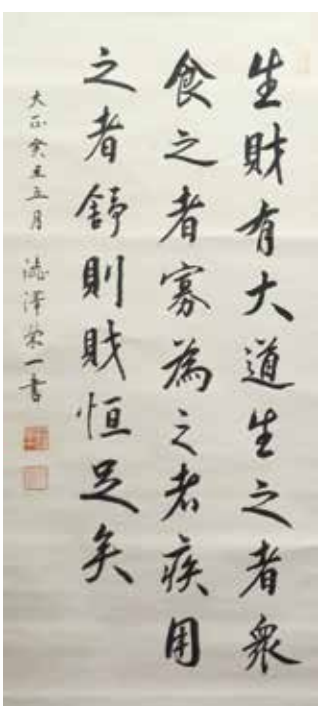 生財有大道生之者衆
食之者寡為之者疾用
之者舒則財恒足矣
大正癸丑五月 澁澤榮一書